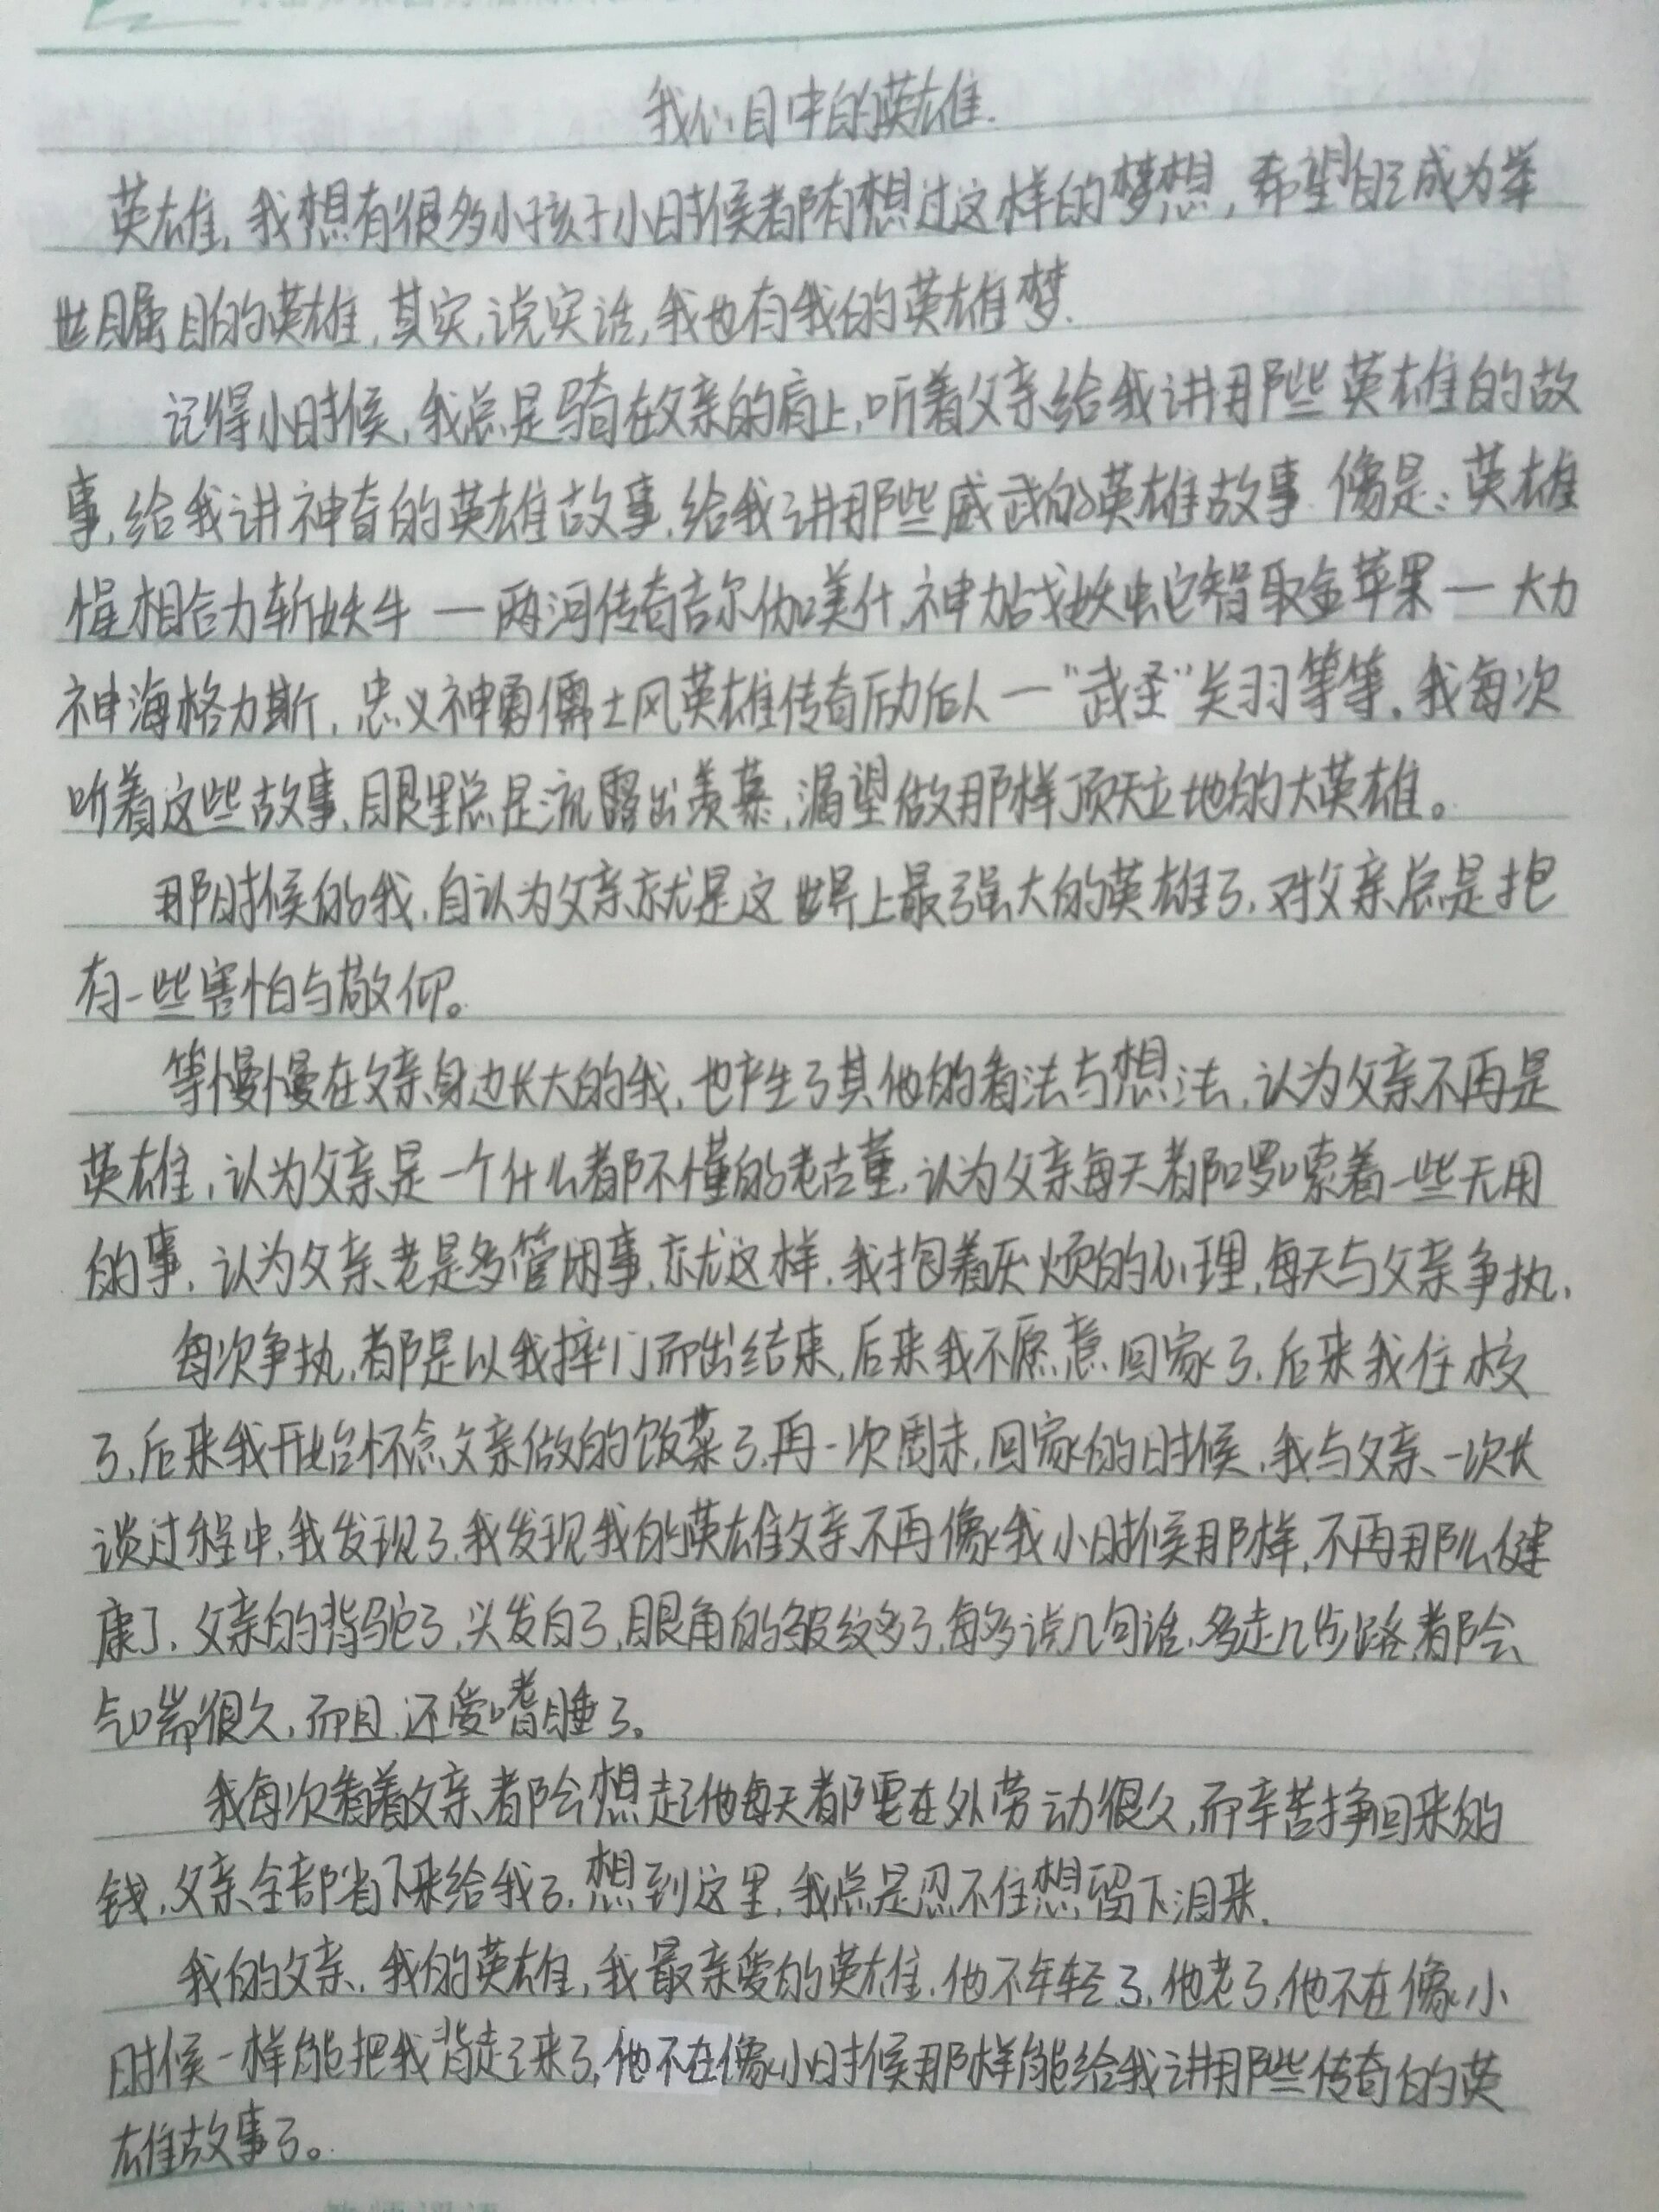 我心目中的英雄.
英雄,我想有很多小孩子小时候都有想过这样的梦想,希望自己成为举
世瞩目的英雄,其实,说实话,我也有我的英雄梦.
记得小时候,我总是骑在父亲的肩上,听着父亲给我讲那些英雄的故
事,给我讲神奇的英雄故事,给我讲那些威武的英雄故事 像是:英雄
惺相合力斩妖牛—两河传奇吉尔伽美什,神力战妖蛇智取金苹果—大力
神海格力斯,忠义神勇儒士风英雄传奇励后人—“武圣”关羽等等。我每次
听着这些故事,眼里总是流露出羡慕,渴望做那样顶天立地的大英雄。
那时候的我,自认为父亲就是这世界上最强大的英雄了,对父亲总是抱
有一些害怕与敬仰。
等慢慢在父亲身边长大的我,也产生了其他的看法与想法,认为父亲不再是
英雄,认为父亲是一个什么都不懂的老古董,认为父亲每天都啰嗦着一些无用
的事,认为父亲老是多管闲事,就这样,我抱着厌烦的心理,每天与父亲争执,
每次争执,都是以我摔门而出结束,后来我不愿意回家了,后来我住校
了,后来我开始怀念父亲做的饭菜了,再一次周末,回家的时候,我与父亲一次长
谈过程中,我发现了,我发现我的英雄父亲不再像我小时候那样,不再那么健
康了,父亲的背驼了,头发白了,眼角的皱纹多了,每多说几句话,多走几步路,都会
气喘很久,而且,还爱嗜睡了。
我每次看着父亲,都会想起他每天都要在外劳动很久,而辛苦挣回来的
钱,父亲全部省下来给我了,想到这里,我总是忍不住想留下泪来.
我的父亲,我的英雄,我最亲爱的英雄,他不年轻了,他老了,他不在像小
时候一样能把我背起来了,他不在像小时候那样能给我讲那些传奇的英
雄故事了。